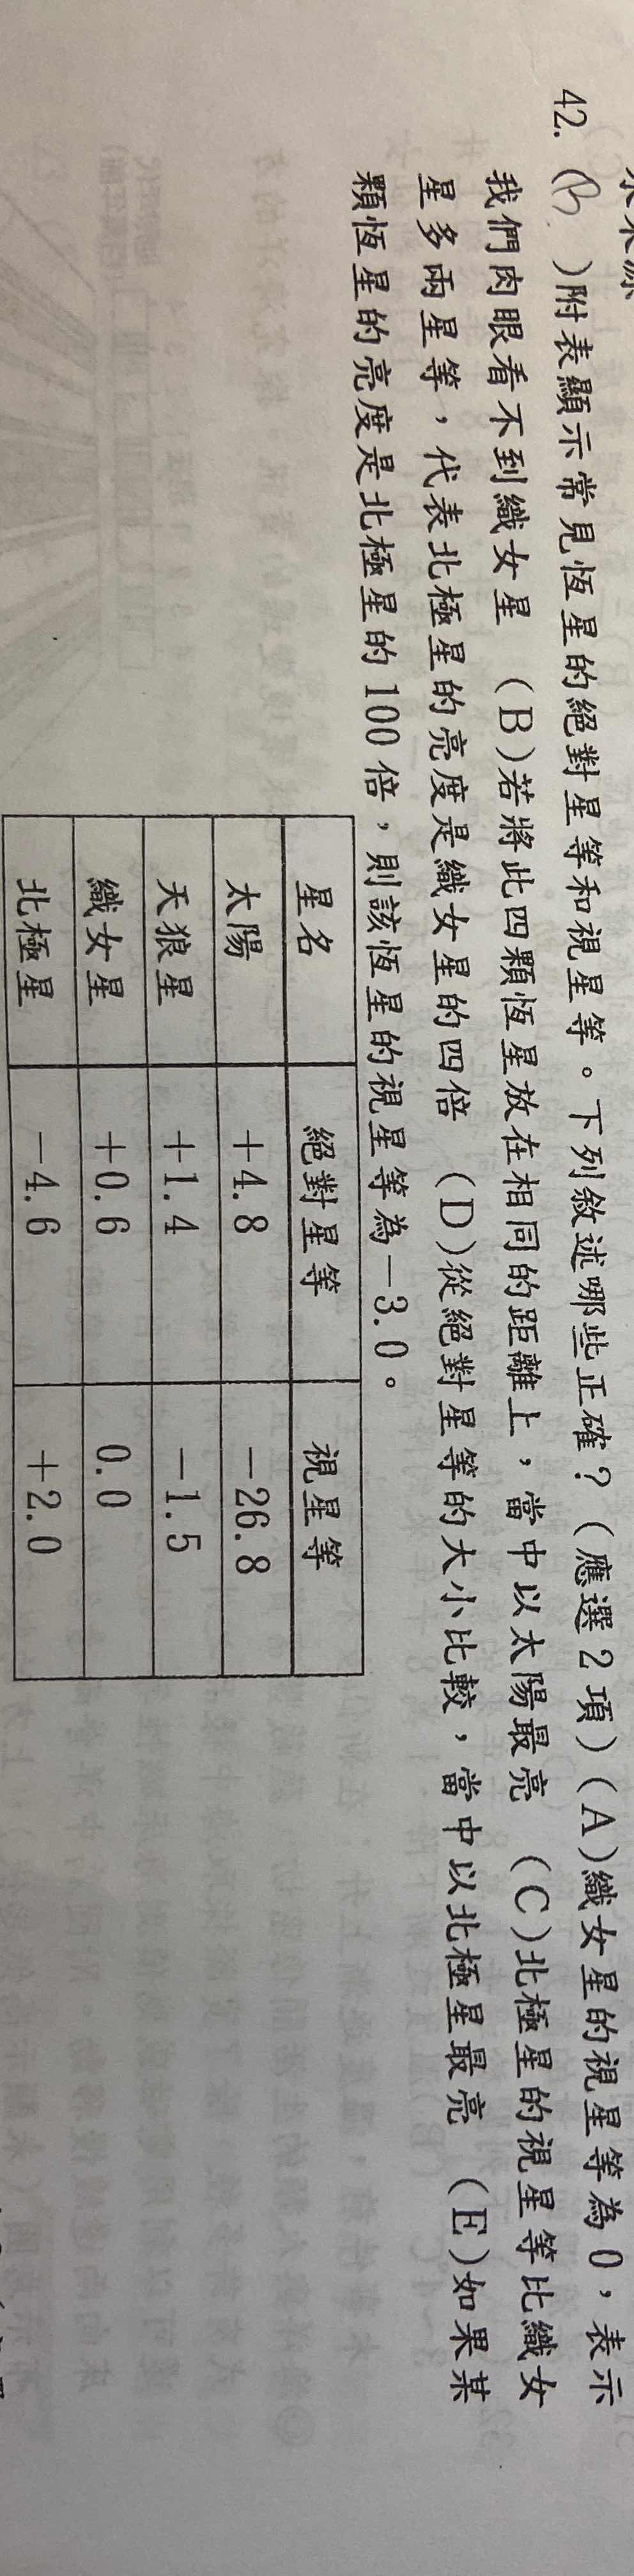 42. (B )附表顯示常見恆星的絕對星等和視星等。下列敘述哪些正確？(應選2項)(A)織女星的視星等為0，表示
我們肉眼看不到織女星 (B)若將此四顆恆星放在相同的距離上，當中以太陽最亮 (C)北極星的視星等比織女
星多兩星等，代表北極星的亮度是織女星的四倍 (D)從絕對星等的大小比較，當中以北極星最亮 (E)如果某
顆恆星的亮度是北極星的100倍，則該恆星的視星等為－3.0。
星名 絕對星等 視星等
太陽 ＋4.8 －26.8
天狼星 ＋1.4 －1.5
織女星 ＋0.6 0.0
北極星 －4.6 ＋2.0